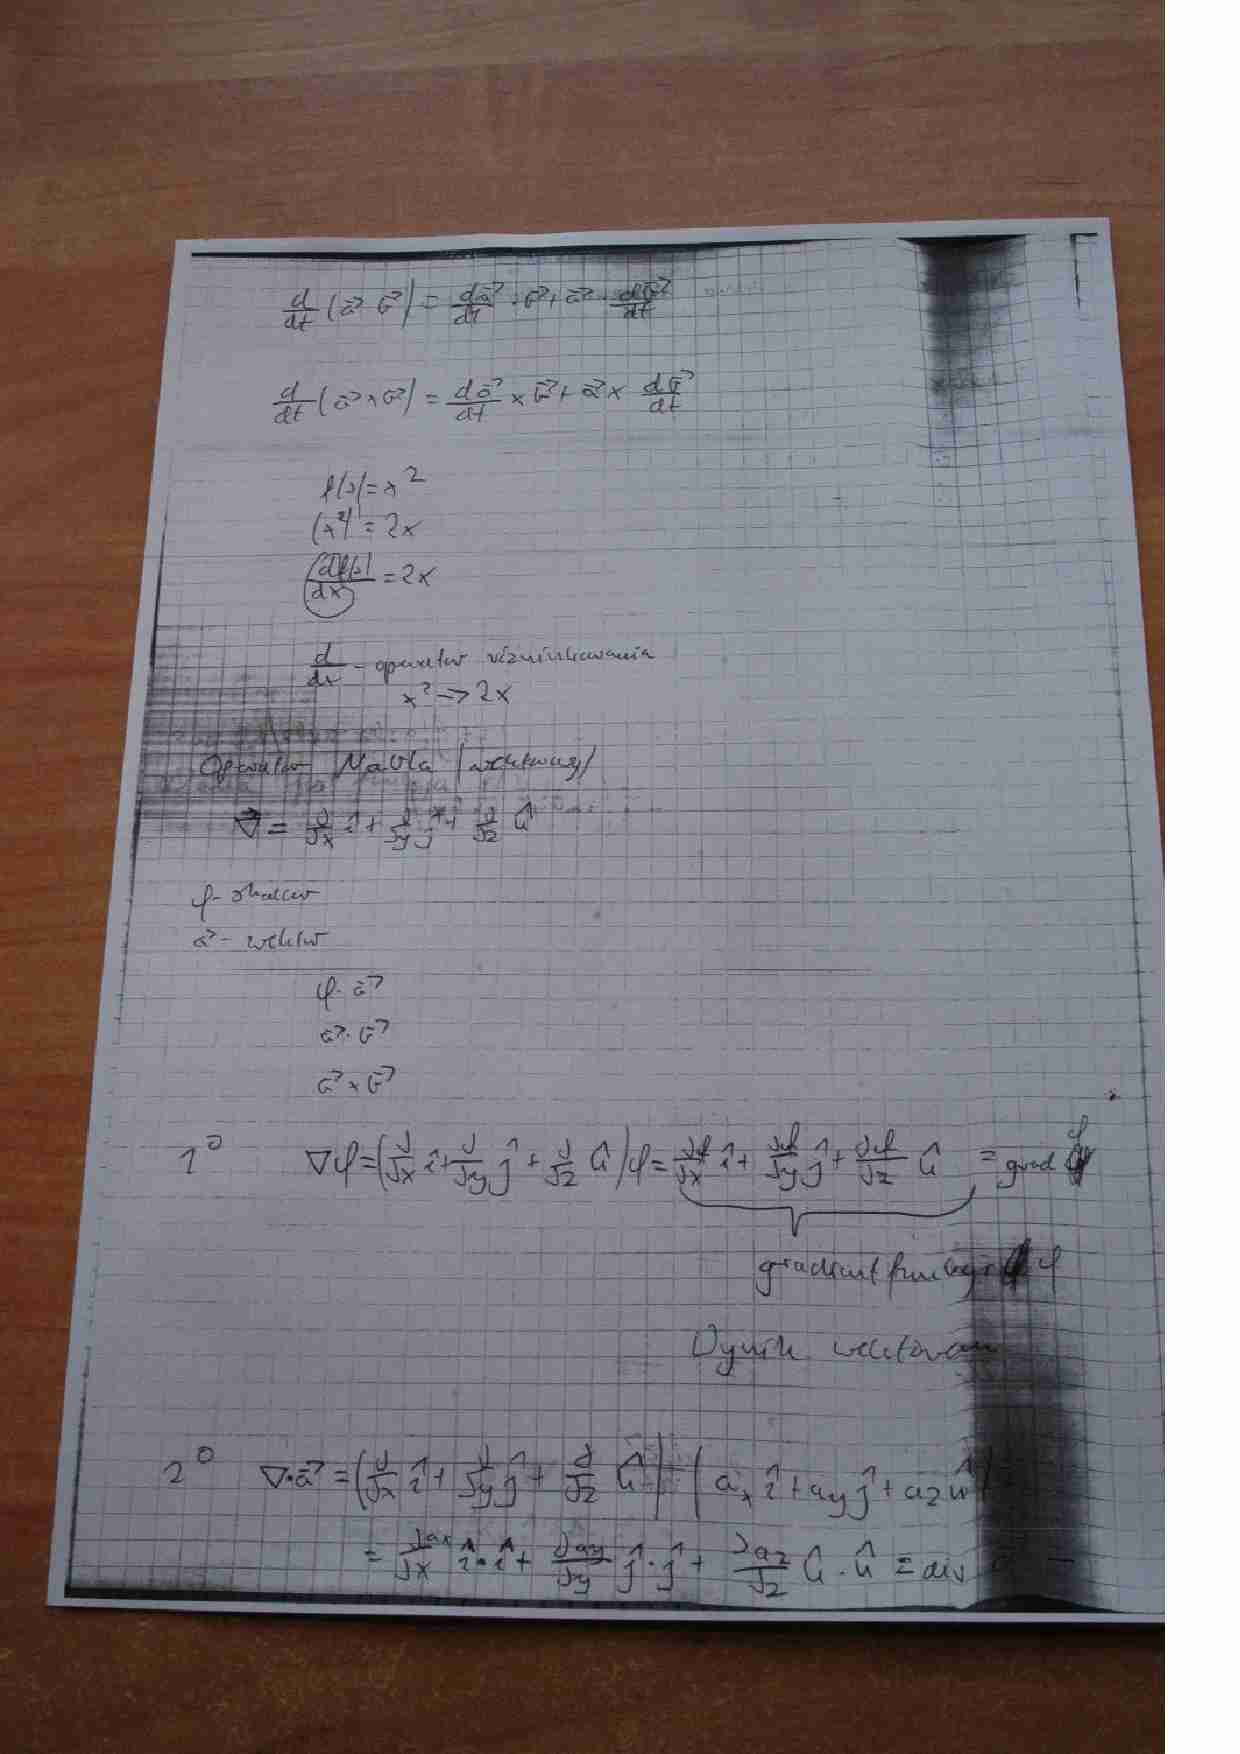 d/dt (a⃗ · b⃗) = da⃗/dt · b⃗ + a⃗ · db⃗/dt
d/dt (a⃗ × b⃗) = da⃗/dt × b⃗ + a⃗ × db⃗/dt
f(x) = x²
(x²)' = 2x
df(x)/dx = 2x
d/dx - operator różniczkowania
x² → 2x
Operator Nabla (wektorowy)
∇⃗ = ∂/∂x î + ∂/∂y ĵ + ∂/∂z k̂
φ - skalar
a⃗ - wektor
φ · a⃗
a⃗ · b⃗
a⃗ × b⃗
1° ∇φ = (∂/∂x î + ∂/∂y ĵ + ∂/∂z k̂) φ = ∂φ/∂x î + ∂φ/∂y ĵ + ∂φ/∂z k̂ = grad φ
gradient funkcji φ
Wynik wektorem
2° ∇·a⃗ = (∂/∂x î + ∂/∂y ĵ + ∂/∂z k̂) · (aₓ î + a_y ĵ + a_z k̂) =
= ∂aₓ/∂x î·î + ∂a_y/∂y ĵ·ĵ + ∂a_z/∂z k̂·k̂ = div